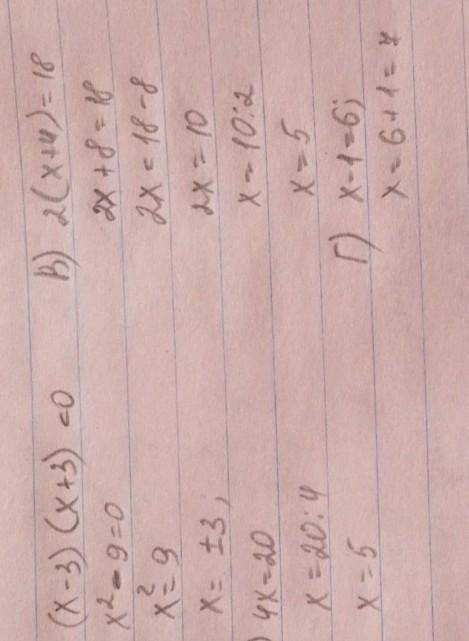 (x-3)(x+3)=0
x²-9=0
x²=9
x=±3;
) 4x=20
x=20:4
x=5
В) 2(x+4)=18
2x+8=18
2x=18-8
2x=10
x=10:2
x=5
Г) x-1=6;
x=6+1=7